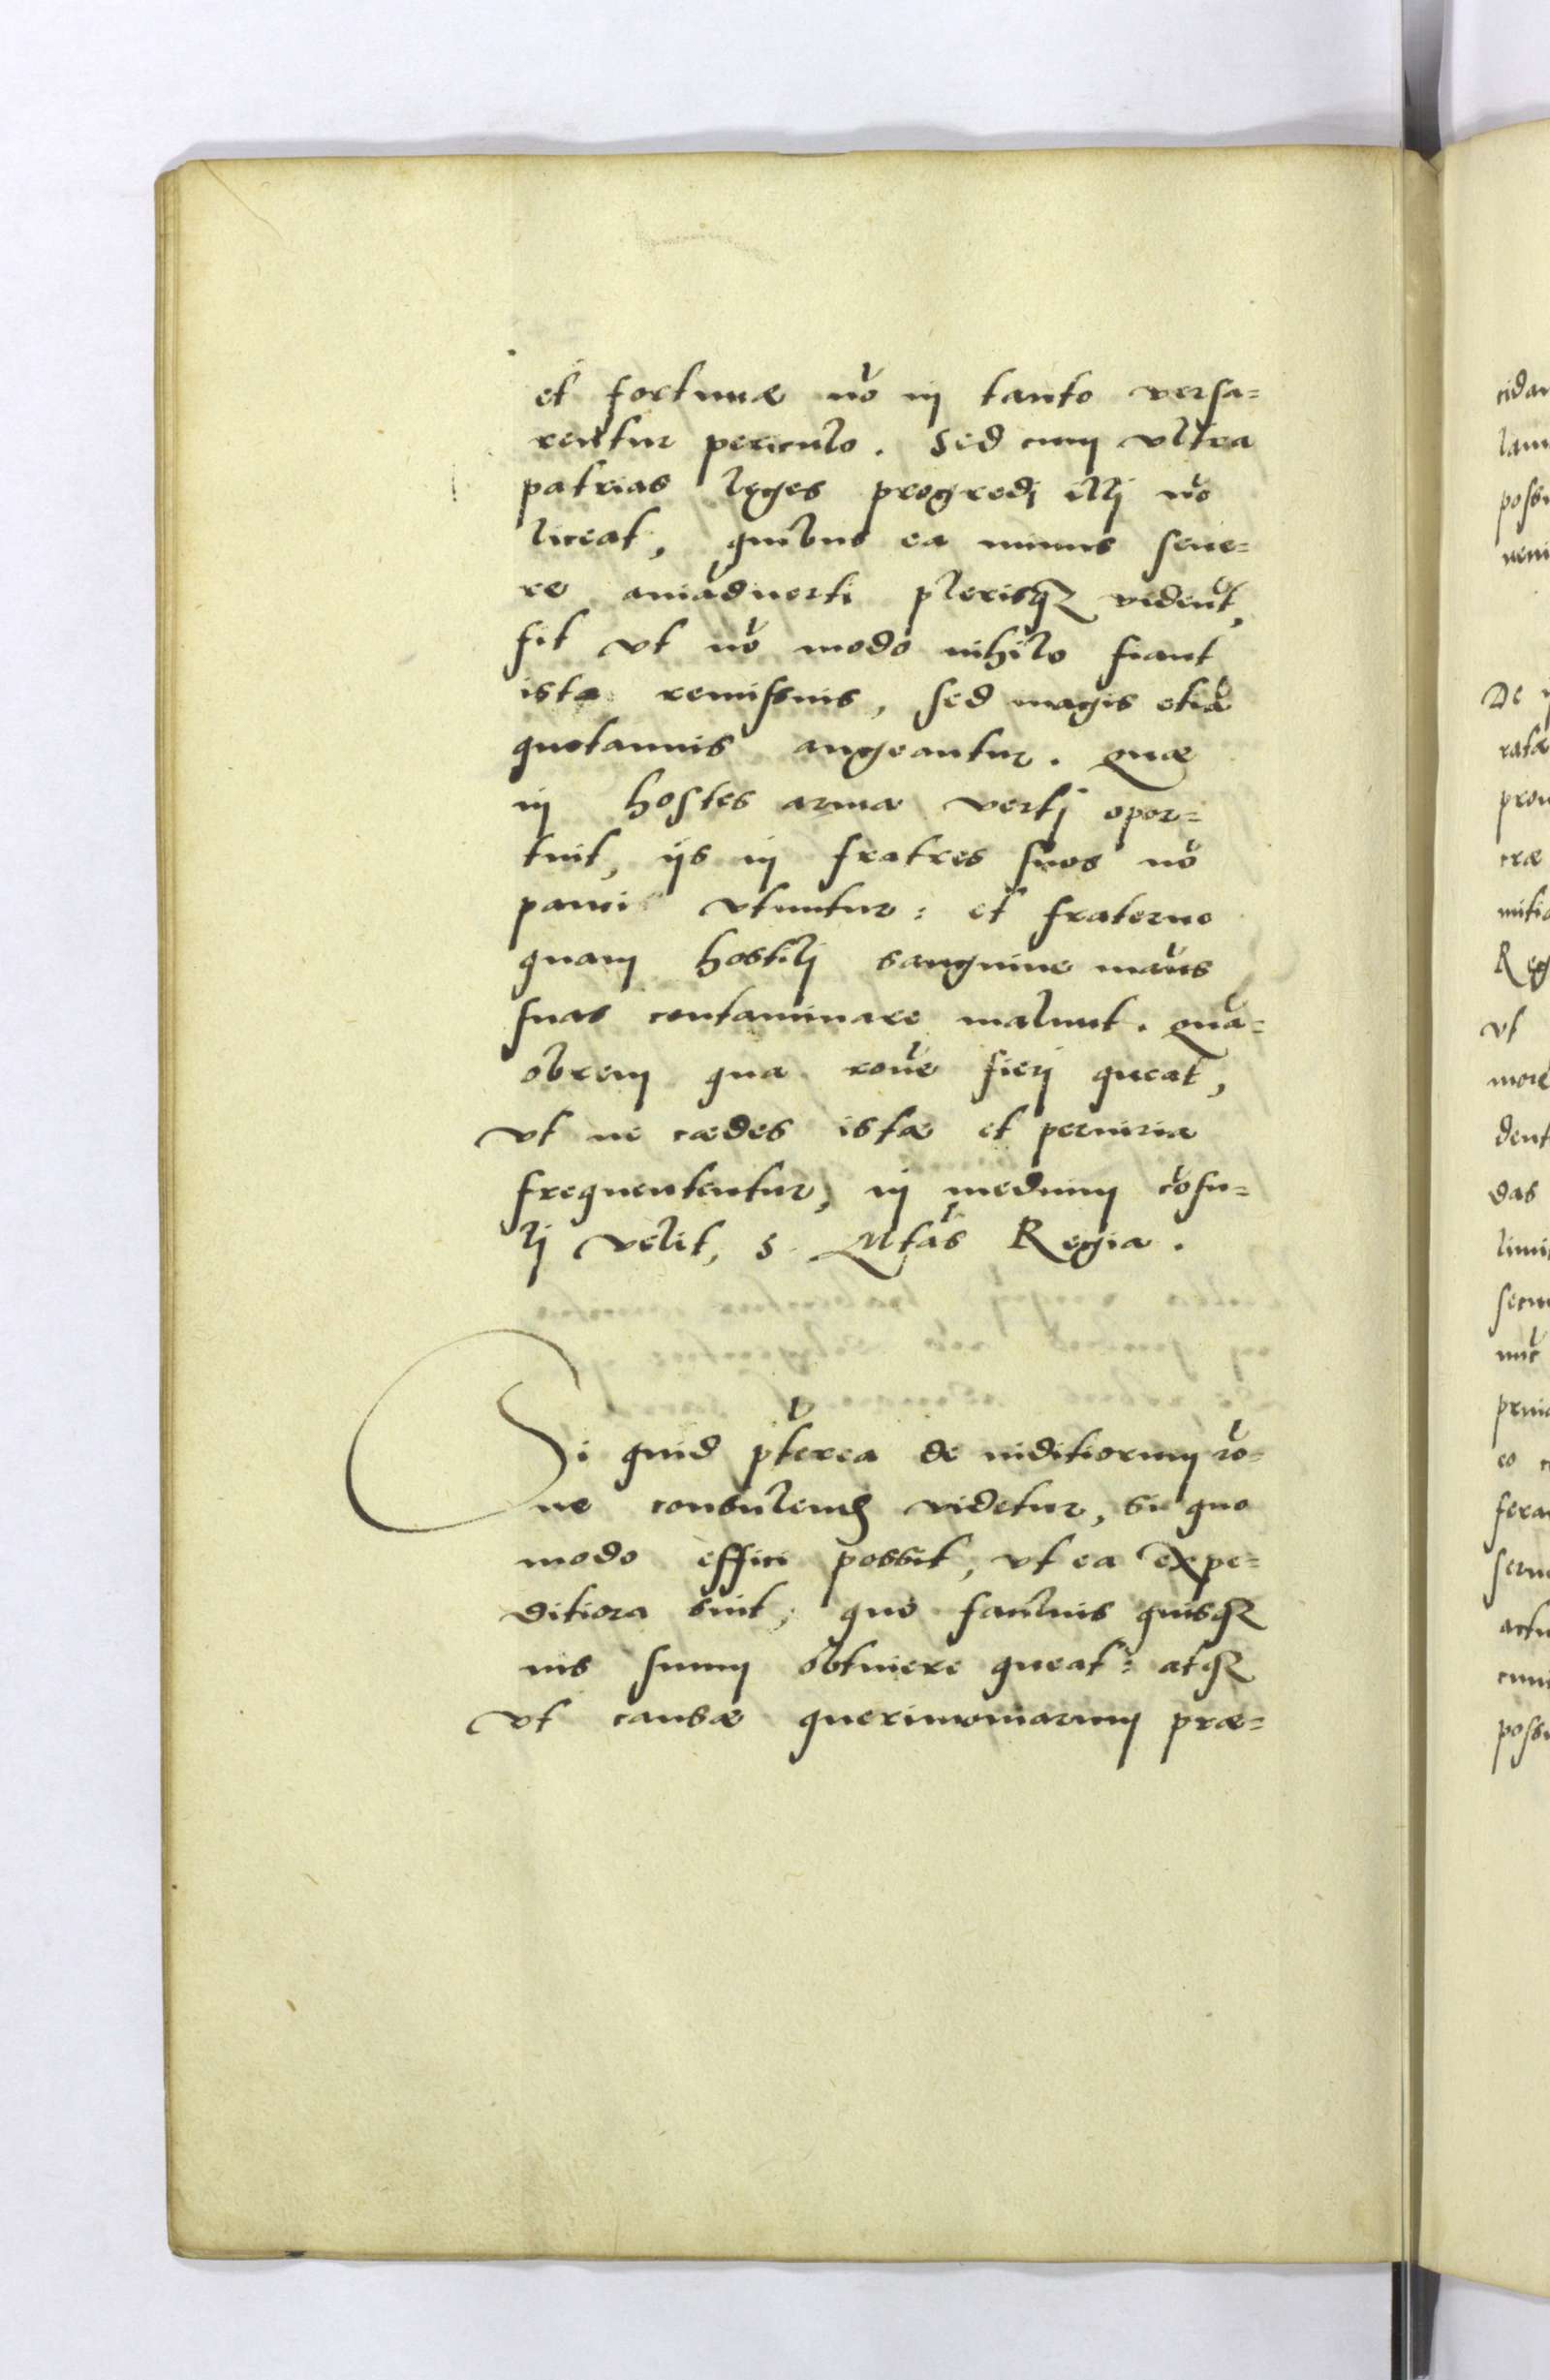 et fortunæ nõ in tanto versa=
rentur periculo. Sed cum vltra
patrias leges progredi illi nõ
liceat, quibus ea minus seue=
re aniãduerti plerisq3 vident̃,
fit vt nõ modo nihilo fiant
ista remissius, sed magis etiã
quotannis augeantur. Quæ
in hostes arma verti opor=
tuit, ijs in fratres suos nõ
pauci vtuntur: et fraterno
quam hostili sanguine manus
suas contaminare malunt. Quã=
obrem qua rõne fieri queat,
vt ne cædes istæ et pernicia
frequententur, in medium cõsu=
li velit, S. Mtãs Regia.
Si quid pt̃erea de iuditiorum rõ=
ne consulend videtur, si quo
modo effici possit, vt ea expe=
ditiora sint, quo facilius quisq3
ius suum obtinere queat: atq3
vt causæ querimoniarum præ=
cidan
lam
poss
ueni
De
ratæ
cræ
Reg
vt
more
dent
das
limi
secu
eo
fera
seru
poss